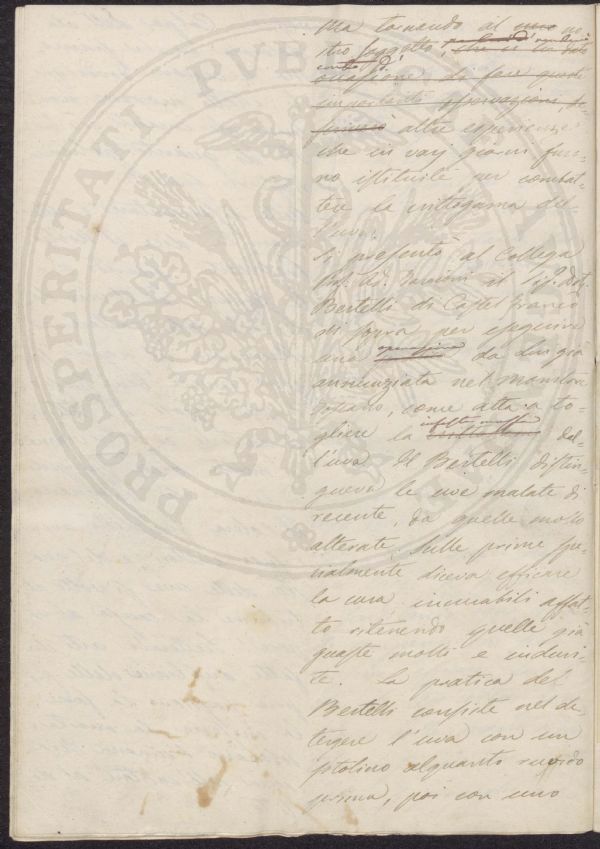 Ma tornando al no-
stro soggetto,
occasione di fare questi
importanti osservazioni,
altre esperienze
che in varj giorni furo-
no istituite per combat-
tere la crittogama del-
l'uva.
Si presentò al Collega
il Sig. Dot.
Bertelli di Castel Franco
di sopra per eseguire
una operazione da lui già
annunziata nel Monitore
toscano, come atta a to-
gliere la infesta muffa dal-
l'uva. Il Bertelli distin-
gueva le uve malate di
recente, da quelle molto
alterate. Sulle prime spe-
cialmente diceva efficace
la cura, incurabili affat-
to ritenendo quelle già
guaste molto e induri-
te. La pratica del
Bertelli consiste nel de-
tergere l'uva con un
alquanto ruvido
prima, poi con uno
PROSPERITATI PVBLICAE